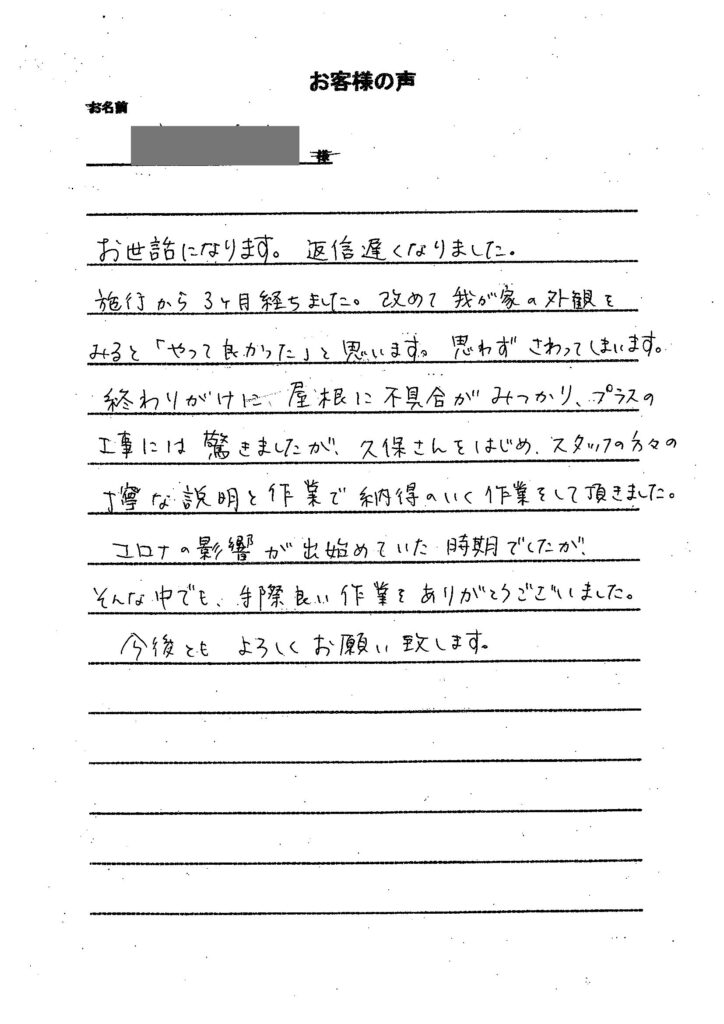 お客様の声
お名前
様
お世話になります。 返信遅くなりました。
施行から3ヶ月経ちました。改めて我が家の外観を
みると「やって良かった」と思います。思わずさわってしまいます。
終わりがけに、屋根に不具合がみつかり、プラスの
工事には驚きましたが、久保さんをはじめ、スタッフの方々の
丁寧な説明と作業で納得のいく作業をして頂きました。
コロナの影響が出始めていた時期でしたが、
そんな中でも、手際良い作業をありがとうございました。
今後とも よろしくお願い致します。